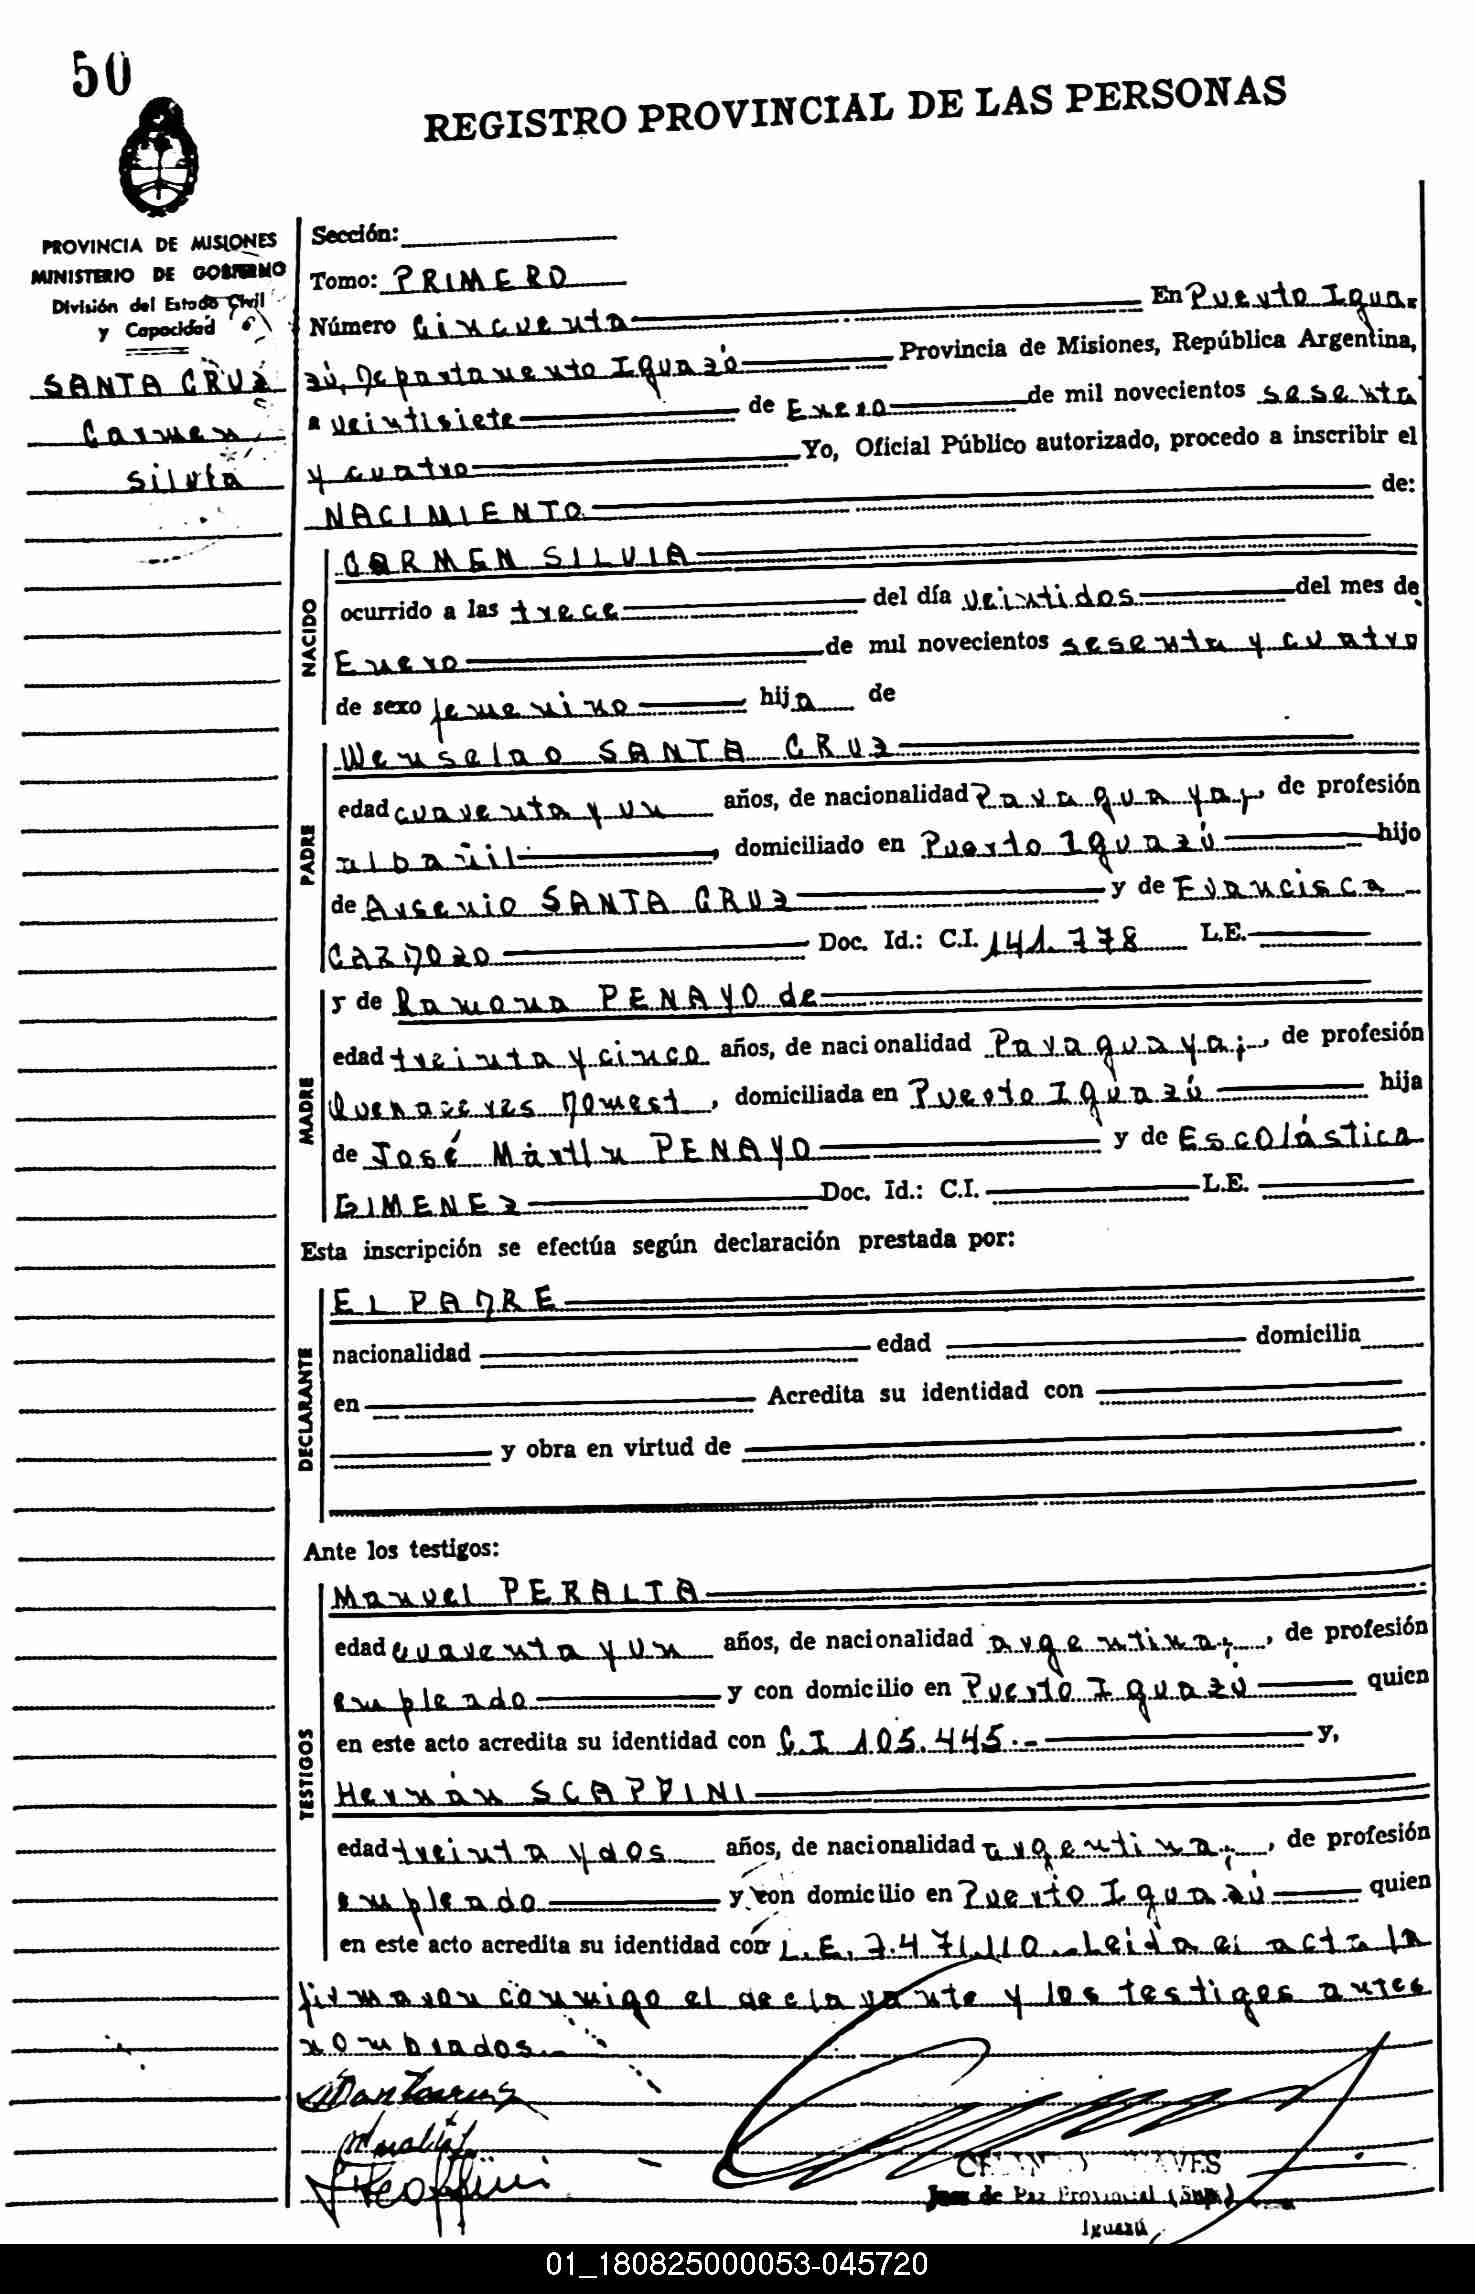 50
REGISTRO PROVINCIAL DE LAS PERSONAS
PROVINCIA DE MISIONES
MINISTERIO DE GOBIERNO
División del Estado Civil
y Capacidad
SANTA CRUZ
Carmen
Silvia
Sección:
Tomo: PRIMERO
Número Cincuenta En Puerto Igua-
zú, Departamento Iguazú Provincia de Misiones, República Argentina,
a veintisiete de Enero de mil novecientos sesenta
y cuatro Yo, Oficial Público autorizado, procedo a inscribir el
NACIMIENTO de:
NACIDO
CARMEN SILVIA
ocurrido a las trece del día veintidos del mes de
Enero de mil novecientos sesenta y cuatro
de sexo femenino hija de
PADRE
Wenselao SANTA CRUZ
edad cuarenta y un años, de nacionalidad Paraguaya; de profesión
albañil, domiciliado en Puerto Iguazú hijo
de Arsenio SANTA CRUZ y de Francisca
CARDOZO Doc. Id.: C.I. 141.778 L.E.
MADRE
y de Ramona PENAYO de
edad treinta y cinco años, de nacionalidad Paraguaya; de profesión
Quehaceres Domest, domiciliada en Puerto Iguazú hija
de José Martín PENAYO y de Escolástica
GIMENEZ Doc. Id.: C.I. L.E.
Esta inscripción se efectúa según declaración prestada por:
DECLARANTE
EL PADRE
nacionalidad edad domicilia
en Acredita su identidad con
y obra en virtud de
Ante los testigos:
TESTIGOS
Manuel PERALTA
edad cuarenta y un años, de nacionalidad argentina;, de profesión
empleado y con domicilio en Puerto Iguazú quien
en este acto acredita su identidad con C.I 105.445.- y,
Hernán SCAPPINI
edad treinta y dos años, de nacionalidad argentina;, de profesión
empleado y con domicilio en Puerto Iguazú quien
en este acto acredita su identidad con L.E. 7.471.110.-Leida el acta la
firmaron conmigo el declarante y los testigos antes
nombrados.-
Juez de Paz Provincial (Sup.)
Iguazú
01_180825000053-045720